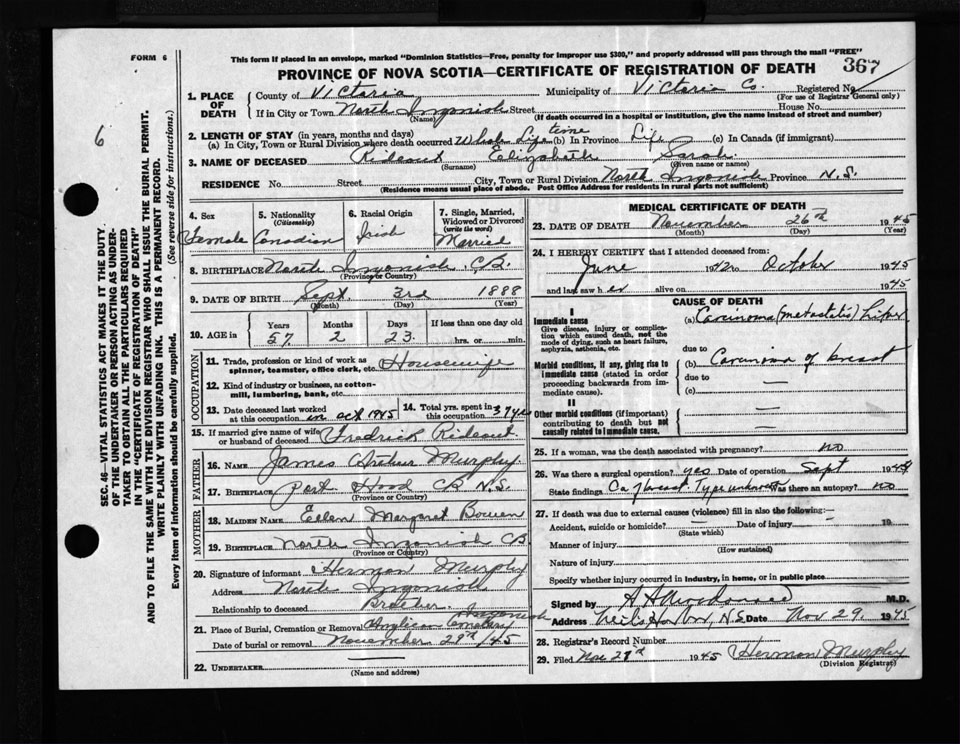 This form if placed in an envelope, marked "Dominion Statistics—Free, penalty for improper use $300," and properly addressed will pass through the mail "FREE"
FORM 6
PROVINCE OF NOVA SCOTIA—CERTIFICATE OF REGISTRATION OF DEATH
367
6
SEC. 46—VITAL STATISTICS ACT MAKES IT THE DUTY
OF THE UNDERTAKER OR PERSON ACTING AS UNDER-
TAKER TO OBTAIN ALL THE PARTICULARS REQUIRED
IN THE "CERTIFICATE OF REGISTRATION OF DEATH"
AND TO FILE THE SAME WITH THE DIVISION REGISTRAR WHO SHALL ISSUE THE BURIAL PERMIT.
WRITE PLAINLY WITH UNFADING INK. THIS IS A PERMANENT RECORD.
Every item of information should be carefully supplied. (See reverse side for instructions.)
1. PLACE OF DEATH
County of Victoria Municipality of Victoria Co. Registered No
(For use of Registrar General only)
If in City or Town North Ingonish Street House No.
(Name) (If death occurred in a hospital or institution, give the name instead of street and number)
2. LENGTH OF STAY (in years, months and days)
(a) In City, Town or Rural Division where death occurred Whole Life time (b) In Province Life (c) In Canada (if immigrant)
3. NAME OF DECEASED Rideout Elizabeth Sarah
(Surname) (Given name or names)
RESIDENCE No. Street City, Town or Rural Division North Ingonish Province N.S.
(Residence means usual place of abode. Post Office Address for residents in rural parts not sufficient)
4. Sex
Female
5. Nationality
(Citizenship)
Canadian
6. Racial Origin
Irish
7. Single, Married, Widowed or Divorced
(write the word)
Married
8. BIRTHPLACE North Ingonish CB.
(Province or Country)
9. DATE OF BIRTH Sept. 3rd 1888
(Month) (Day) (Year)
10. AGE in Years Months Days If less than one day
57 2 23 hrs. or min.
OCCUPATION
11. Trade, profession or kind of work as
spinner, teamster, office clerk, etc. Housewife
12. Kind of industry or business, as cotton-
mill, lumbering, bank, etc.
13. Date deceased last worked
at this occupation in oct 1945
14. Total yrs. spent in
this occupation 37 yrs
15. If married give name of wife
or husband of deceased Fredrick Rideout
FATHER
16. NAME James Arthur Murphy
17. BIRTHPLACE Port Hood CB N.S.
(Province or Country)
MOTHER
18. MAIDEN NAME Ellen Margaret Bowen
19. BIRTHPLACE North Ingonish CB
(Province or Country)
20. Signature of Informant Herman Murphy
Address North Ingonish
Relationship to deceased Brother
21. Place of Burial, Cremation or Removal Anglican Cemetery Ingonish
Date of burial or removal November 29th /45
22. UNDERTAKER
(Name and address)
MEDICAL CERTIFICATE OF DEATH
23. DATE OF DEATH November 26th 1945
(Month) (Day) (Year)
24. I HEREBY CERTIFY that I attended deceased from:
June to October 1945
and last saw her alive on 1945
CAUSE OF DEATH
I
Immediate cause
Give disease, injury or complica-
tion which caused death, not the
mode of dying, such as heart failure,
asphyxia, asthenia, etc.
(a) Carcinoma (metastitis) Liver
due to
Morbid conditions, if any, giving rise to
immediate cause (stated in order
proceeding backwards from im-
mediate cause).
(b) Carcinoma of breast
due to —
(c) —
II
Other morbid conditions (if important)
contributing to death but not
causally related to immediate cause.
25. If a woman, was the death associated with pregnancy? no
26. Was there a surgical operation? yes Date of operation Sept 1944
State findings Ca of breast. Type unknown Was there an autopsy? no
27. If death was due to external causes (violence) fill in also the following:—
Accident, suicide or homicide? — Date of injury 19
(State which)
Manner of injury
(How sustained)
Nature of injury
Specify whether injury occurred in industry, in home, or in public place
Signed by M.D.
Address Neils Harbor, N.S. Date Nov 29, 1945
28. Registrar's Record Number
29. Filed Nov 29th 1945 Herman Murphy
(Division Registrar)